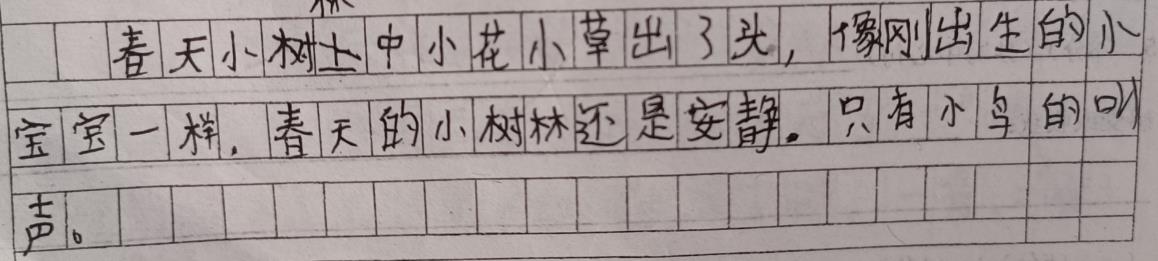 春天小树林土中小花小草出了头，像刚出生的小
宝宝一样，春天的小树林还是安静。只有小鸟的叫
声。